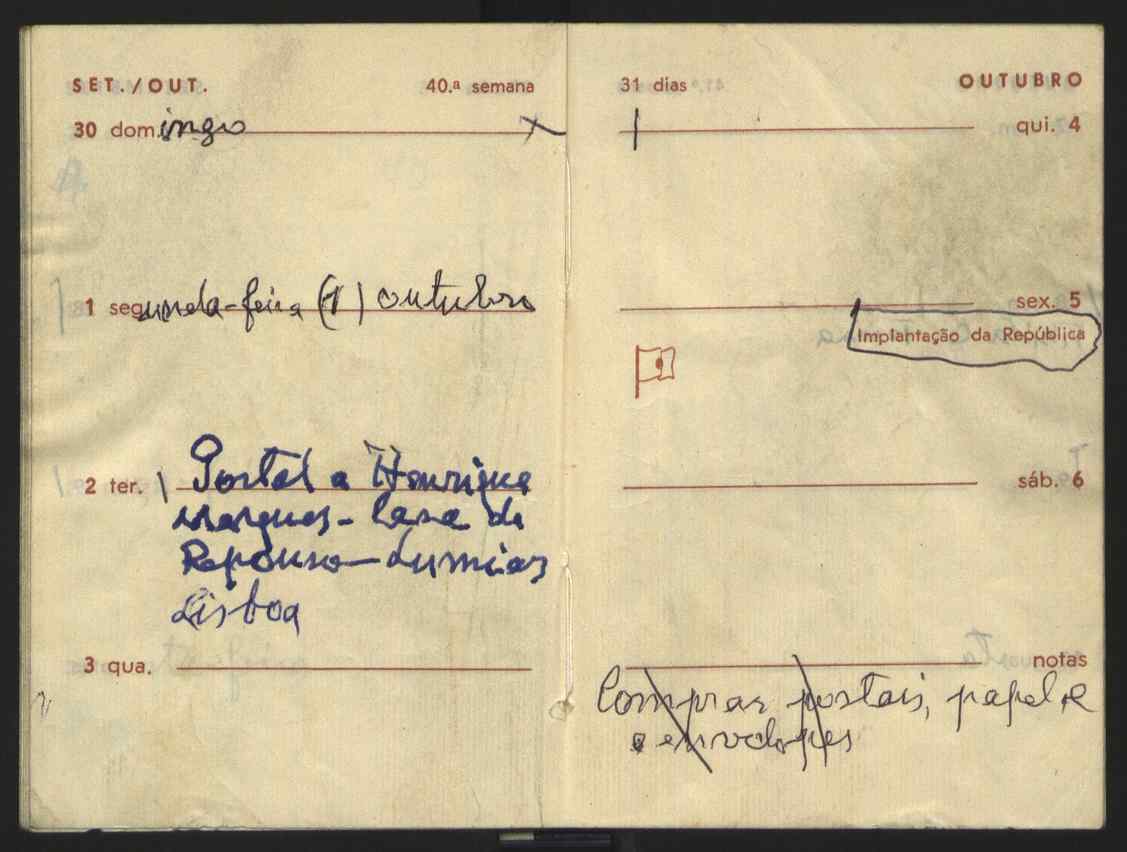 SET./OUT. 40.ª semana
30 dom.ingo
1 segunda-feira (1) outubro
2 ter. Postal a Henrique
Marques - Casa de
Repouso - Lumiar
Lisboa
3 qua.
31 dias OUTUBRO
qui. 4
sex. 5
Implantação da República
sáb. 6
notas
Comprar postais, papel e
e envelopes